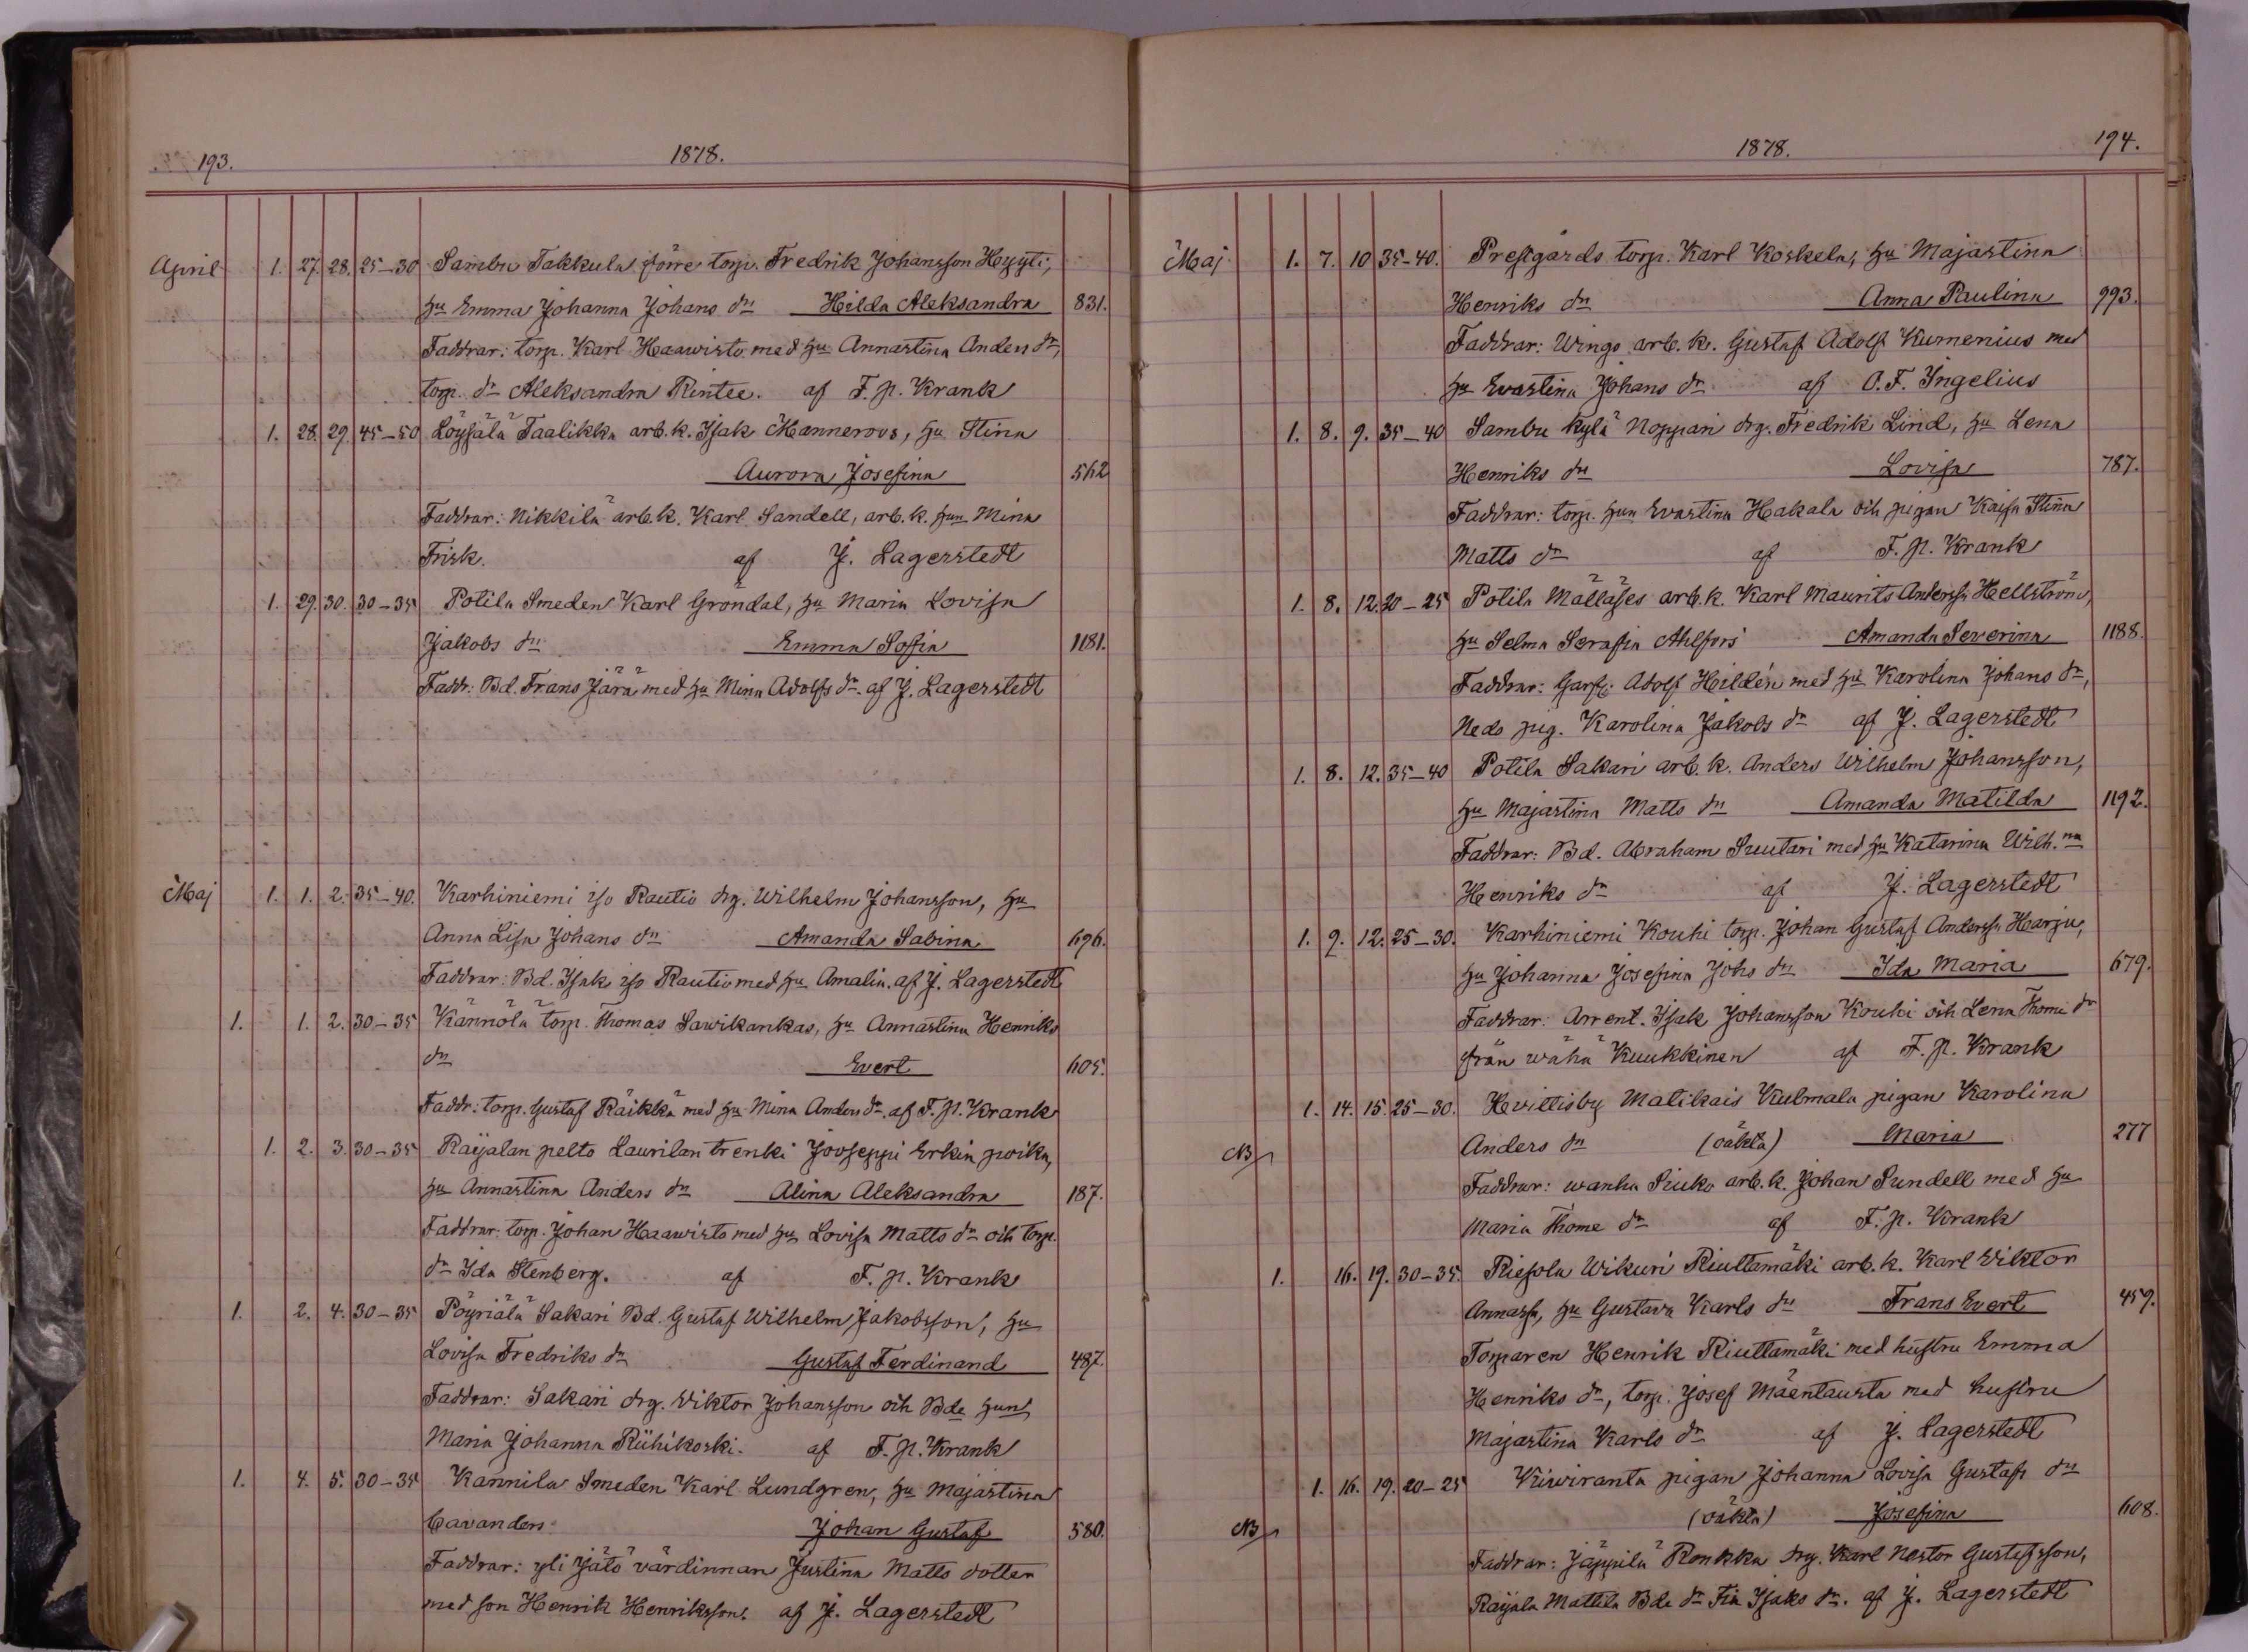 193. 1878.
April 1. 27. 28. 25–30 Sambu Takkula förre torp. Fredrik Johansson Hyyti,
hu Emma Johanna Johans dr Hilda Aleksandra 831.
Faddrar: torp. Karl Haawisto med hu Annastina Anders dr,
torp. dr Aleksandra Rintee. af F. p. Krank
1. 28. 29. 45–50 Löysälä Taalikka arb. k. Isak Mannerovs, hu Stina
Aurora Josefina 562
Faddrar: Nikkilä arb. k. Karl Sandell, arb. k. hun Mina
Frisk. af J. Lagerstedt
1. 29. 30. 30–35 Potila Smeden Karl Gröndal, hu Maria Lovisa
Jakobs dr Emma Sofia 1181.
Faddr: Bd. Frans Järä med hu Mina Adolfs dr. af J. Lagerstedt
Maj 1. 1. 2. 35–40. Karhiniemi iso Rautio drg. Wilhelm Johansson, hu
Anna Lisa Johans dr Amanda Sabina 696.
Faddrar: Bd. Isak iso Rautio med hu Amalia. af J. Lagerstedt
1. 1. 2. 30–35 Kännölä torp. Thomas Sawikankas, hu Annastina Henriks
dr Evert 605.
Faddr: torp. Gustaf Räikkä med hu Mina Anders dr. af F. p. Krank
1. 2. 3. 30–35 Raijalan pelto Laurilan trenki Jooseppi Erkin poika,
hu Annastina Anders dr Alina Aleksandra 187.
Faddrar: torp. Johan Haawisto med hu Lovisa Matts dr och torp.
dr Ida Stenberg. af F. p. Krank
1. 2. 4. 30–35 Pöyriälä Sakari Bd. Gustaf Wilhelm Jakobsson, hu
Lovisa Fredriks dr Gustaf Ferdinand 487.
Faddrar: Sakari drg. Viktor Johansson och Bde hun
Maria Johanna Riihikoski. af F. p. Krank
1. 4. 5. 30–35 Kannila Smeden Karl Lundgren, hu Majastina
Cavanders Johan Gustaf 580.
Faddrar: yli Jätö värdinnan Justina Matts dotter
med son Henrik Henriksson. af J. Lagerstedt
1878. 194.
Maj 1. 7. 10 35–40. Prestgårds torp. Karl Koskela, hu Majastina
Henriks dr Anna Paulina 993.
Faddrar: Wingo arb. k. Gustaf Adolf Kumenius med
hu Evastina Johans dr af O. F. Ingelius
1. 8. 9. 35–40 Sambu kylä Noppari drg. Fredrik Lind, hu Lena
Henriks dr Lovisa 787.
Faddrar: torp. hun Evastina Hakala och pigan Kaisa Stina
Matts dr af F. p. Krank
1. 8. 12. 20–25 Potila Mälläses arb. k. Karl Maurits Anderss. Hellström,
hu Selma Serafia Ahlfors Amanda Severina 1188.
Faddrar: Garfv. Adolf Heildén med hu Karolina Johans dr,
Neds pig. Karolina Jakobs dr af J. Lagerstedt
1. 8. 12. 35–40 Potila Sakari arb. k. Anders Wilhelm Johansson,
hu Majastina Matts dr Amanda Matilda 1192.
Faddrar: Bd. Abraham Suutari med hu Katarina Wilh.na
Henriks dr af J. Lagerstedt
1. 9. 12. 25–30. Karhiniemi Kouhi torp. Johan Gustaf Anderss. Harju,
hu Johanna Josefina Johs dr Ida Maria 679.
Faddrar: Arrent. Isak Johansson Kouhi och Lena Thome dr
från wähä Kuukkinen af F. p. Krank
1. 14. 15. 25–30. Hvittisby Matikais Kulmala pigan Karolina
NB Anders dr (oäkta) Maria 277
Faddrar: wanha Siuko arb. k. Johan Sundell med hu
Maria Thome dr af F. p. Krank
1. 16. 19. 30–35. Riesola Wikuri Riuttamäki arb. k. Karl Viktor
Annass., hu Gustava Karls dr Frans Evert 459.
Torparen Henrik Riuttamäki med hustru Emma
Henriks dr, torp. Josef Mäentausta med hustru
Majastina Karls dr af J. Lagerstedt
1. 16. 19. 20–25 Kiwiranta pigan Johanna Lovisa Gustafs dr
NB (oäkta) Josefina 608.
Faddrar: Jäppilä Ronkka drg. Karl Nestor Gustafsson,
Raijala Mattila Bde dr Fia Isaks dr. af J. Lagerstedt